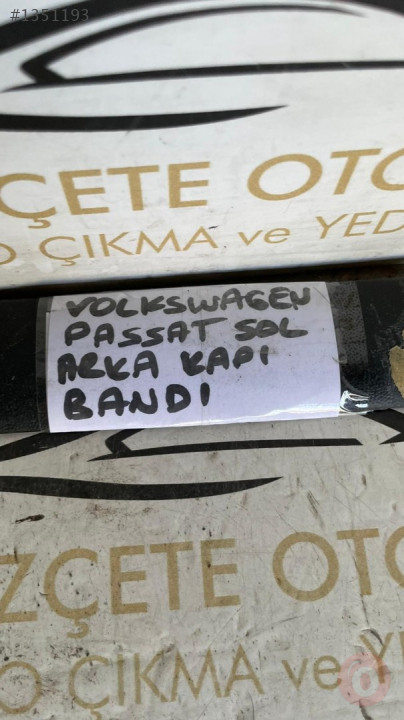 #1351193
ÇETE OTO
O ÇIKMA ve YED
VOLKSWAGEN
PASSAT SOL
ARKA KAPI
BANDI
ZÇETE OTO
O ÇIKMA ve YE